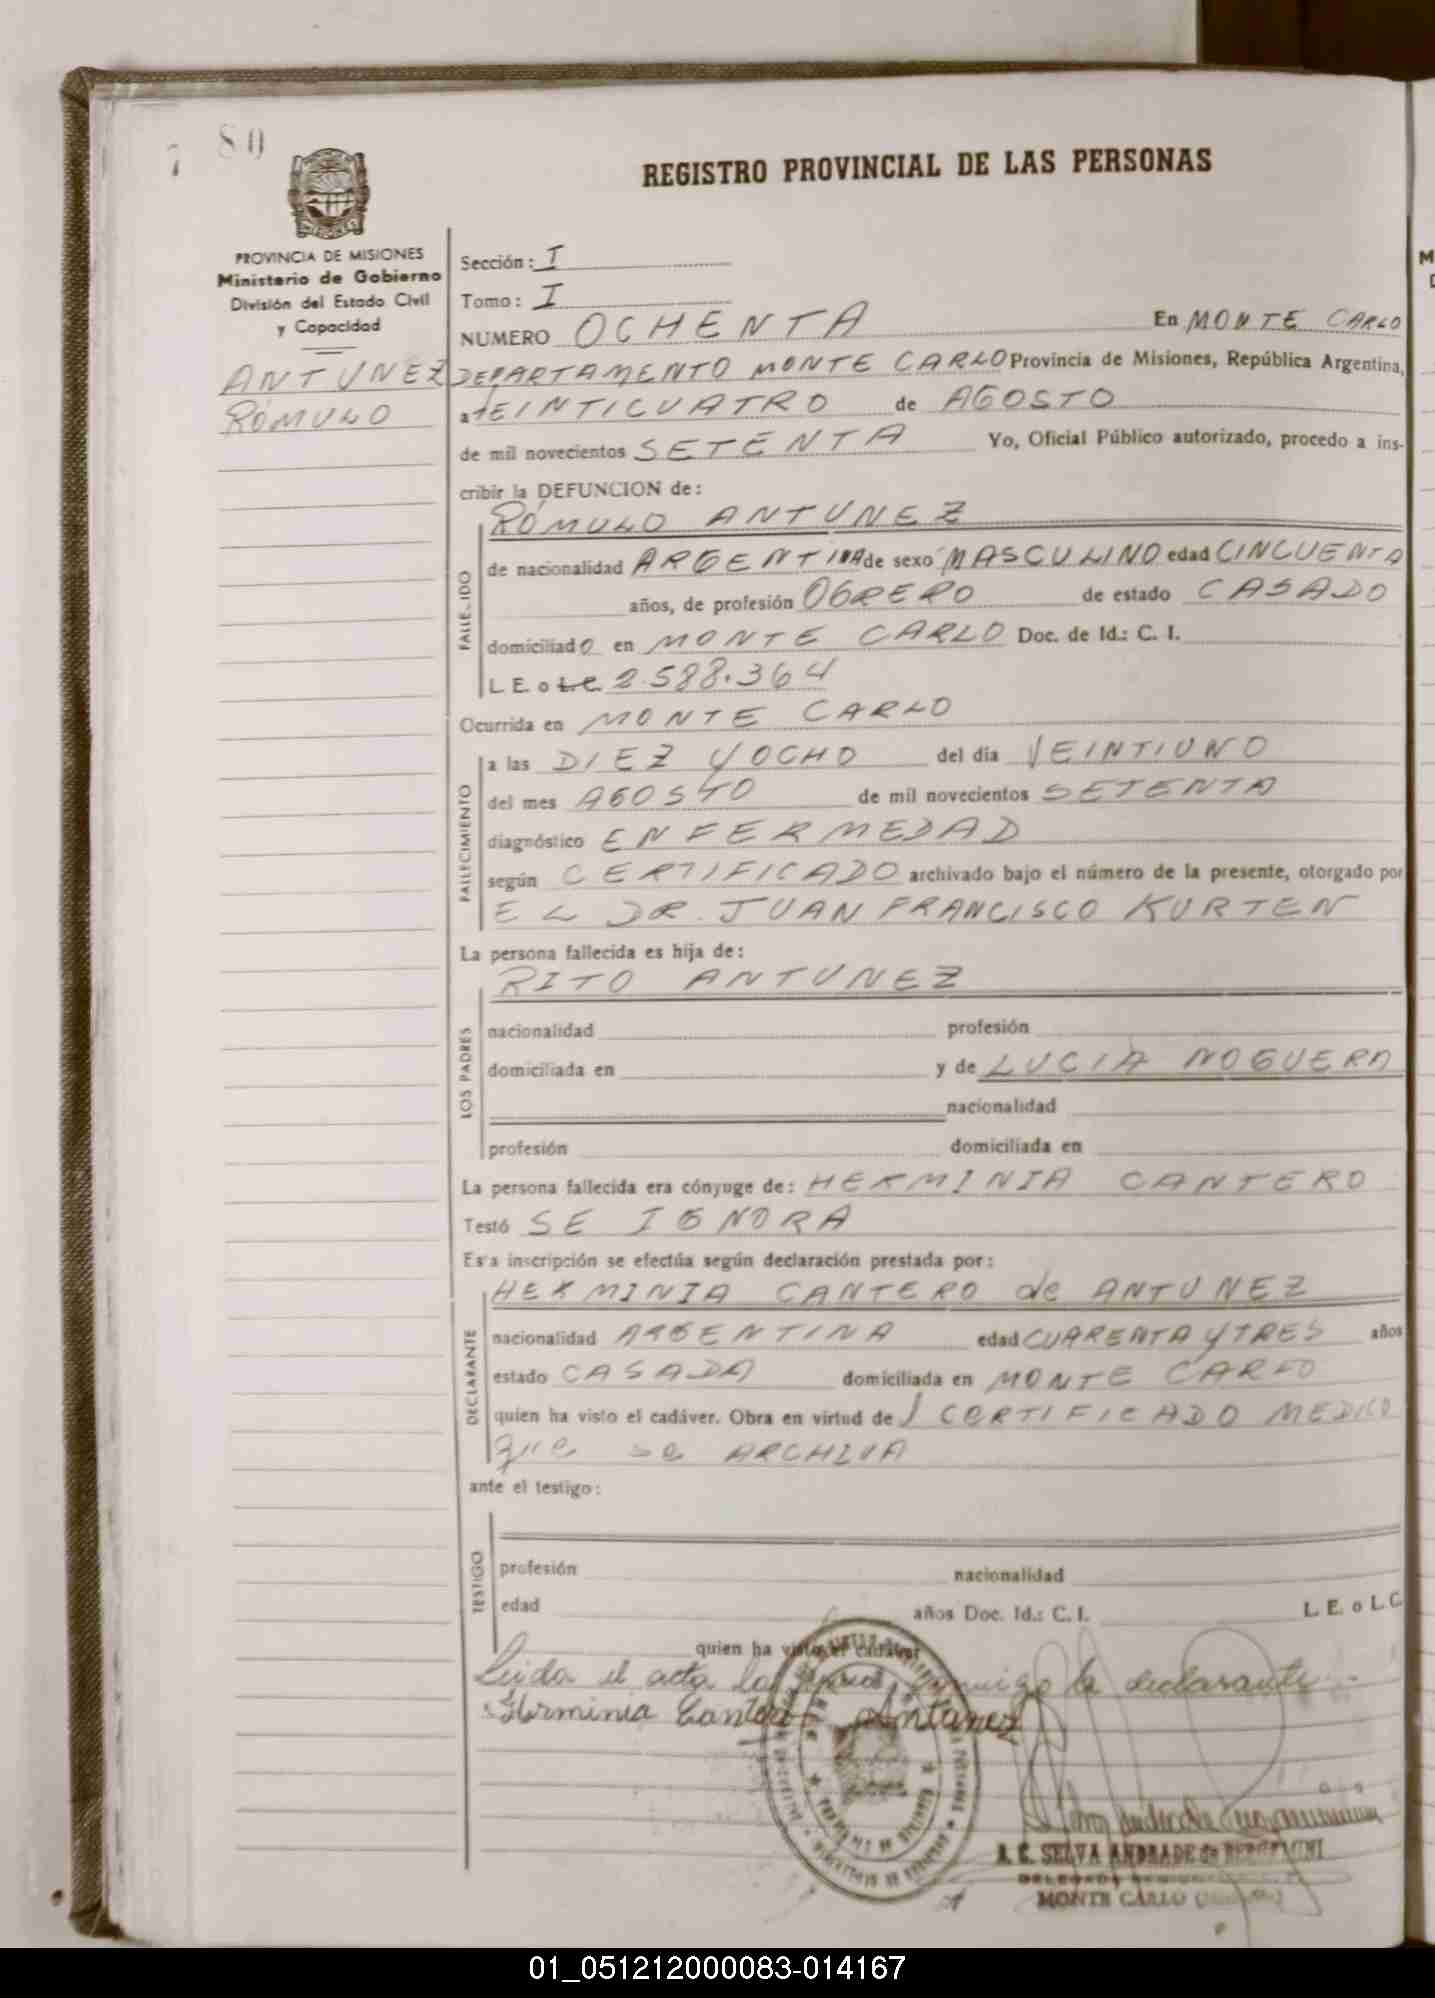 7 80
REGISTRO PROVINCIAL DE LAS PERSONAS
PROVINCIA DE MISIONES
Ministerio de Gobierno
División del Estado Civil
y Capacidad
ANTUNEZ
RÓMULO
Sección: I
Tomo: I
NUMERO OCHENTA En MONTE CARLO
DEPARTAMENTO MONTE CARLO Provincia de Misiones, República Argentina,
a VEINTICUATRO de AGOSTO
de mil novecientos SETENTA Yo, Oficial Público autorizado, procedo a ins-
cribir la DEFUNCION de:
RÓMULO ANTUNEZ
FALLECIDO
de nacionalidad ARGENTINA de sexo MASCULINO edad CINCUENTA
años, de profesión OBRERO de estado CASADO
domiciliado en MONTE CARLO Doc. de Id.: C. I.
L. E. o L.C. 2.588.364
Ocurrida en MONTE CARLO
FALLECIMIENTO
a las DIEZ Y OCHO del día VEINTIUNO
del mes AGOSTO de mil novecientos SETENTA
diagnóstico ENFERMEDAD
según CERTIFICADO archivado bajo el número de la presente, otorgado por
EL DR. JUAN FRANCISCO KURTEN
La persona fallecida es hija de:
RITO ANTUNEZ
LOS PADRES
nacionalidad profesión
domiciliada en y de LUCIA NOGUERA
nacionalidad
profesión domiciliada en
La persona fallecida era cónyuge de: HERMINIA CANTERO
Testó SE IGNORA
Esta inscripción se efectúa según declaración prestada por:
HERMINIA CANTERO de ANTUNEZ
DECLARANTE
nacionalidad ARGENTINA edad CUARENTA Y TRES años
estado CASADA domiciliada en MONTE CARLO
quien ha visto el cadáver. Obra en virtud de 1 CERTIFICADO MEDICO
que se ARCHIVA
ante el testigo:
TESTIGO
profesión nacionalidad
edad años Doc. Id.: C. I. L. E. o L.C.
quien ha visto el cadáver
Leida el acta la conmigo la declarante
Herminia Cantero Antunez
SELVA ANDRADE de BERGAMINI
MONTE CARLO
01_051212000083-014167